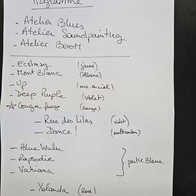 Programme
- Atelier Blues
- Atelier Soundpainting
- Atelier BOOM
- Ecstasy (jaune)
- Mont Blanc (Blanc)
- Up (arc-en-ciel)
- Deep Purple (violet)
- Conga (rouge)
- Rue des Lilas (violet)
- Dance! (multicolore)
- Blue
- Rapsodie
- partie Bleue
- Yolanda (rose)